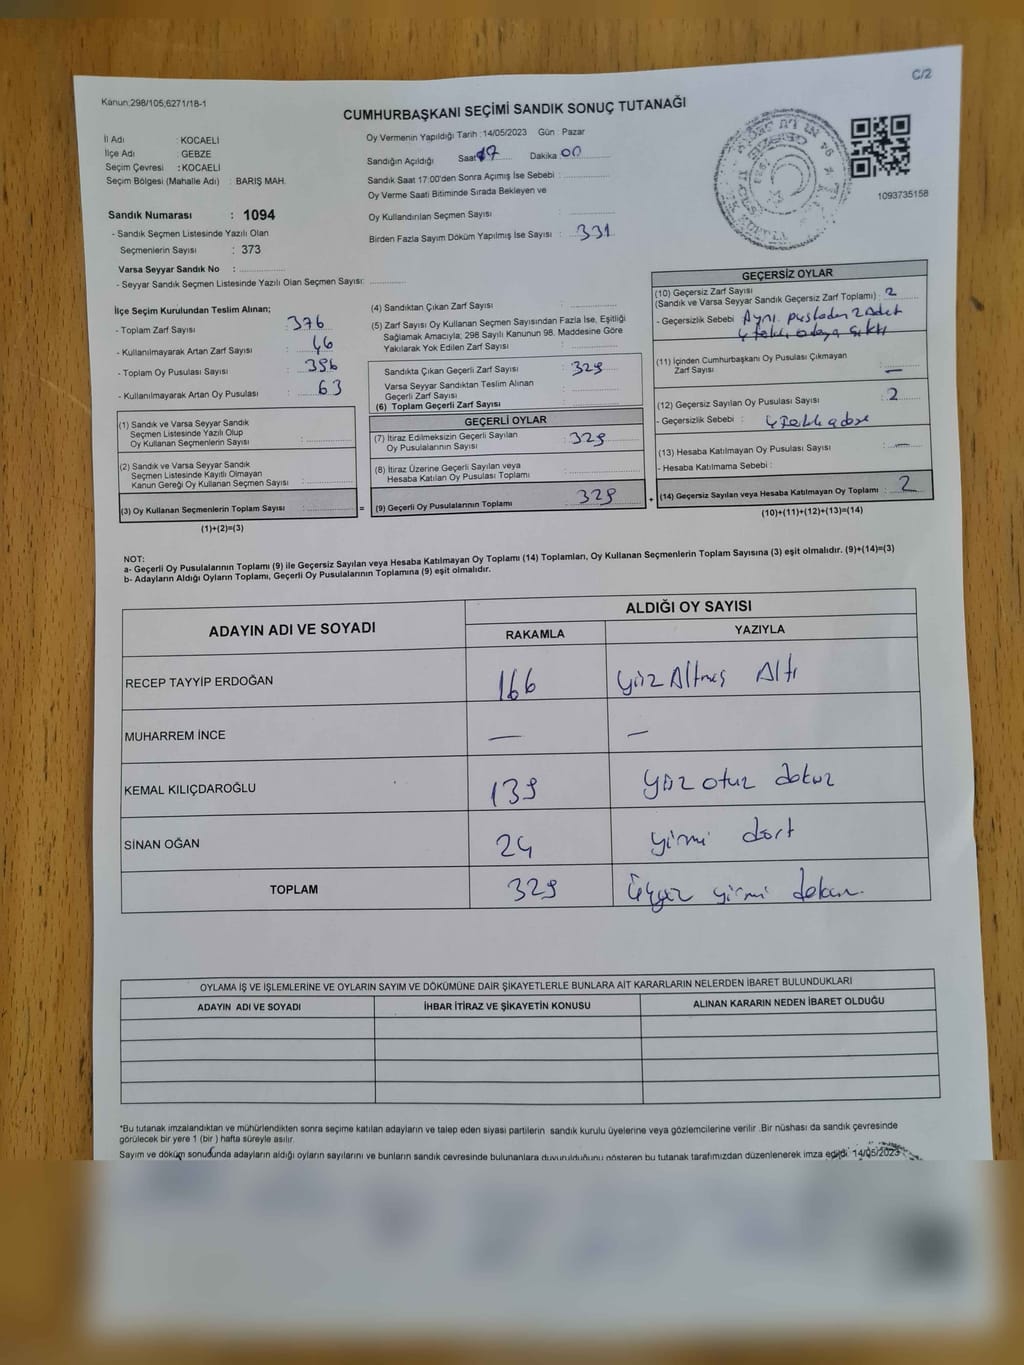 C/2
Kanun,298/105;6271/18-1
CUMHURBAŞKANI SEÇİMİ SANDIK SONUÇ TUTANAĞI
İl Adı : KOCAELİ
İlçe Adı : GEBZE
Seçim Çevresi : KOCAELİ
Seçim Bölgesi (Mahalle Adı) : BARIŞ MAH.
Sandık Numarası : 1094
- Sandık Seçmen Listesinde Yazılı Olan
Seçmenlerin Sayısı : 373
Varsa Seyyar Sandık No :
- Seyyar Sandık Seçmen Listesinde Yazılı Olan Seçmen Sayısı:
Oy Vermenin Yapıldığı Tarih :14/05/2023 Gün : Pazar
Sandığın Açıldığı Saat 17 Dakika 00
Sandık Saat 17:00'den Sonra Açımış İse Sebebi :
Oy Verme Saati Bitiminde Sırada Bekleyen ve
Oy Kullandırılan Seçmen Sayısı :
Birden Fazla Sayım Döküm Yapılmış İse Sayısı : 331
1093735158
İlçe Seçim Kurulundan Teslim Alınan;
- Toplam Zarf Sayısı : 376
- Kullanılmayarak Artan Zarf Sayısı : 46
- Toplam Oy Pusulası Sayısı : 396
- Kullanılmayarak Artan Oy Pusulası : 63
(1) Sandık ve Varsa Seyyar Sandık
Seçmen Listesinde Yazılı Olup
Oy Kullanan Seçmenlerin Sayısı :
(2) Sandık ve Varsa Seyyar Sandık
Seçmen Listesinde Kayıtlı Olmayan
Kanun Gereği Oy Kullanan Seçmen Sayısı :
(3) Oy Kullanan Seçmenlerin Toplam Sayısı : =
(1)+(2)=(3)
(4) Sandıktan Çıkan Zarf Sayısı :
(5) Zarf Sayısı Oy Kullanan Seçmen Sayısından Fazla İse, Eşitliği
Sağlamak Amacıyla; 298 Sayılı Kanunun 98. Maddesine Göre
Yakılarak Yok Edilen Zarf Sayısı :
Sandıkta Çıkan Geçerli Zarf Sayısı : 329
Varsa Seyyar Sandıktan Teslim Alınan
Geçerli Zarf Sayısı :
(6) Toplam Geçerli Zarf Sayısı :
GEÇERLİ OYLAR
(7) İtiraz Edilmeksizin Geçerli Sayılan
Oy Pusulalarının Sayısı : 329
(8) İtiraz Üzerine Geçerli Sayılan veya
Hesaba Katılan Oy Pusulası Toplamı :
(9) Geçerli Oy Pusulalarının Toplamı : 329 +
GEÇERSİZ OYLAR
(10) Geçersiz Zarf Sayısı
(Sandık ve Varsa Seyyar Sandık Geçersiz Zarf Toplamı) : 2
- Geçersizlik Sebebi : Aynı pusladan 2 adet
(11) İçinden Cumhurbaşkanı Oy Pusulası Çıkmayan
Zarf Sayısı : —
(12) Geçersiz Sayılan Oy Pusulası Sayısı : 2
- Geçersizlik Sebebi :
(13) Hesaba Katılmayan Oy Pusulası Sayısı : —
- Hesaba Katılmama Sebebi :
(14) Geçersiz Sayılan veya Hesaba Katılmayan Oy Toplamı : 2
(10)+(11)+(12)+(13)=(14)
NOT:
a- Geçerli Oy Pusulalarının Toplamı (9) ile Geçersiz Sayılan veya Hesaba Katılmayan Oy Toplamı (14) Toplamları, Oy Kullanan Seçmenlerin Toplam Sayısına (3) eşit olmalıdır. (9)+(14)=(3)
b- Adayların Aldığı Oyların Toplamı, Geçerli Oy Pusulalarının Toplamına (9) eşit olmalıdır.
ADAYIN ADI VE SOYADI
ALDIĞI OY SAYISI
RAKAMLA YAZIYLA
RECEP TAYYİP ERDOĞAN 166 yüz Altmış Altı
MUHARREM İNCE — —
KEMAL KILIÇDAROĞLU 139 yüz otuz dokuz
SİNAN OĞAN 24 yirmi dört
TOPLAM 329 üçyüz yirmi dokuz.
OYLAMA İŞ VE İŞLEMLERİNE VE OYLARIN SAYIM VE DÖKÜMÜNE DAİR ŞİKAYETLERLE BUNLARA AİT KARARLARIN NELERDEN İBARET BULUNDUKLARI
ADAYIN ADI VE SOYADI İHBAR İTİRAZ VE ŞİKAYETİN KONUSU ALINAN KARARIN NEDEN İBARET OLDUĞU
*Bu tutanak imzalandıktan ve mühürlendikten sonra seçime katılan adayların ve talep eden siyasi partilerin sandık kurulu üyelerine veya gözlemcilerine verilir .Bir nüshası da sandık çevresinde
görülecek bir yere 1 (bir ) hafta süreyle asılır.
Sayım ve döküm sonucunda adayların aldığı oyların sayılarını ve bunların sandık çevresinde bulunanlara duyurulduğunu gösteren bu tutanak tarafımızdan düzenlenerek imza edildi. 14/05/2023